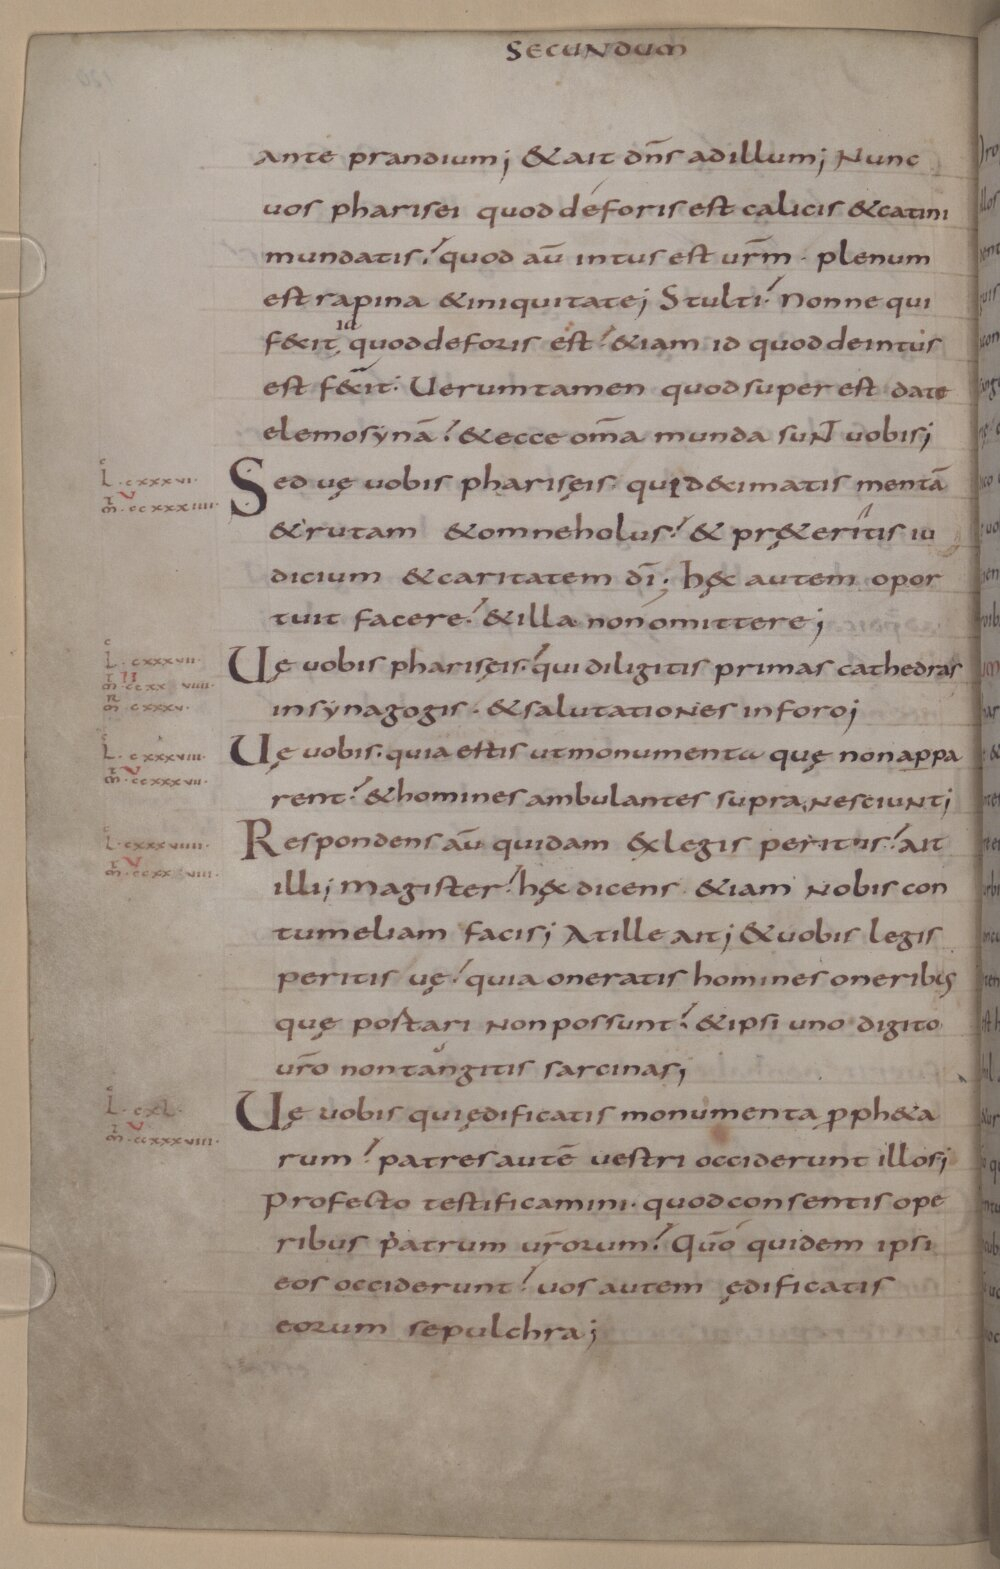 SECUNDUM
ante prandium; & ait dn̄s ad illum; Nunc
uos pharisei quod deforis est calicis & catini
mundatis? quod aū intus est ur̄m · plenum
est rapina & iniquitate; Stulti? Nonne qui
f&it id quod deforis est? &iam id quod deintus
est f&it· Uerumtamen quod super est date
elemosynā? & ecce om̄a munda suNT uobis;
L · cxxxvi ·
m̄ · ccxxxiiii ·
Sed uę uobis pharisęis · quid decimatis mentā
& rutam & omne holus? & pręteritis iu
dicium & caritatem dī; hęc autem opor
tuit facere? & illa non omittere;
L · cxxxvii ·
m̄ · ccxxviiii ·
m̄ · cxxxv ·
Uę uobis pharisęis · qui diligitis primas cathedras
in synagogis · & salutationes in foro;
L · cxxxviii ·
m̄ · ccxxxvii ·
Uę uobis · quia estis ut monumenta quę non appa
rent? & homines ambulantes supra, nesciunt;
L · cxxxviiii ·
m̄ · ccxxviiii ·
Respondens aū quidam ex legis peritus? ait
illi; Magister? hęc dicens &iam nobis con
tumeliam facis; At ille ait; & uobis legis
peritis uę? quia oneratis homines oneribus
quę portari non possunt? & ipsi uno digito
ur̄o non tangitis sarcinas;
L · cxl ·
m̄ · ccxxxviiii ·
Uę uobis qui ędificatis monumenta p̱roph&a
rum? patres autē uestri occiderunt illos;
Profecto testificamini · quod consentis ope
ribus patrum ur̄orum? Quō quidem ipsi
eos occiderunt? uos autem ędificatis
eorum sepulchra;